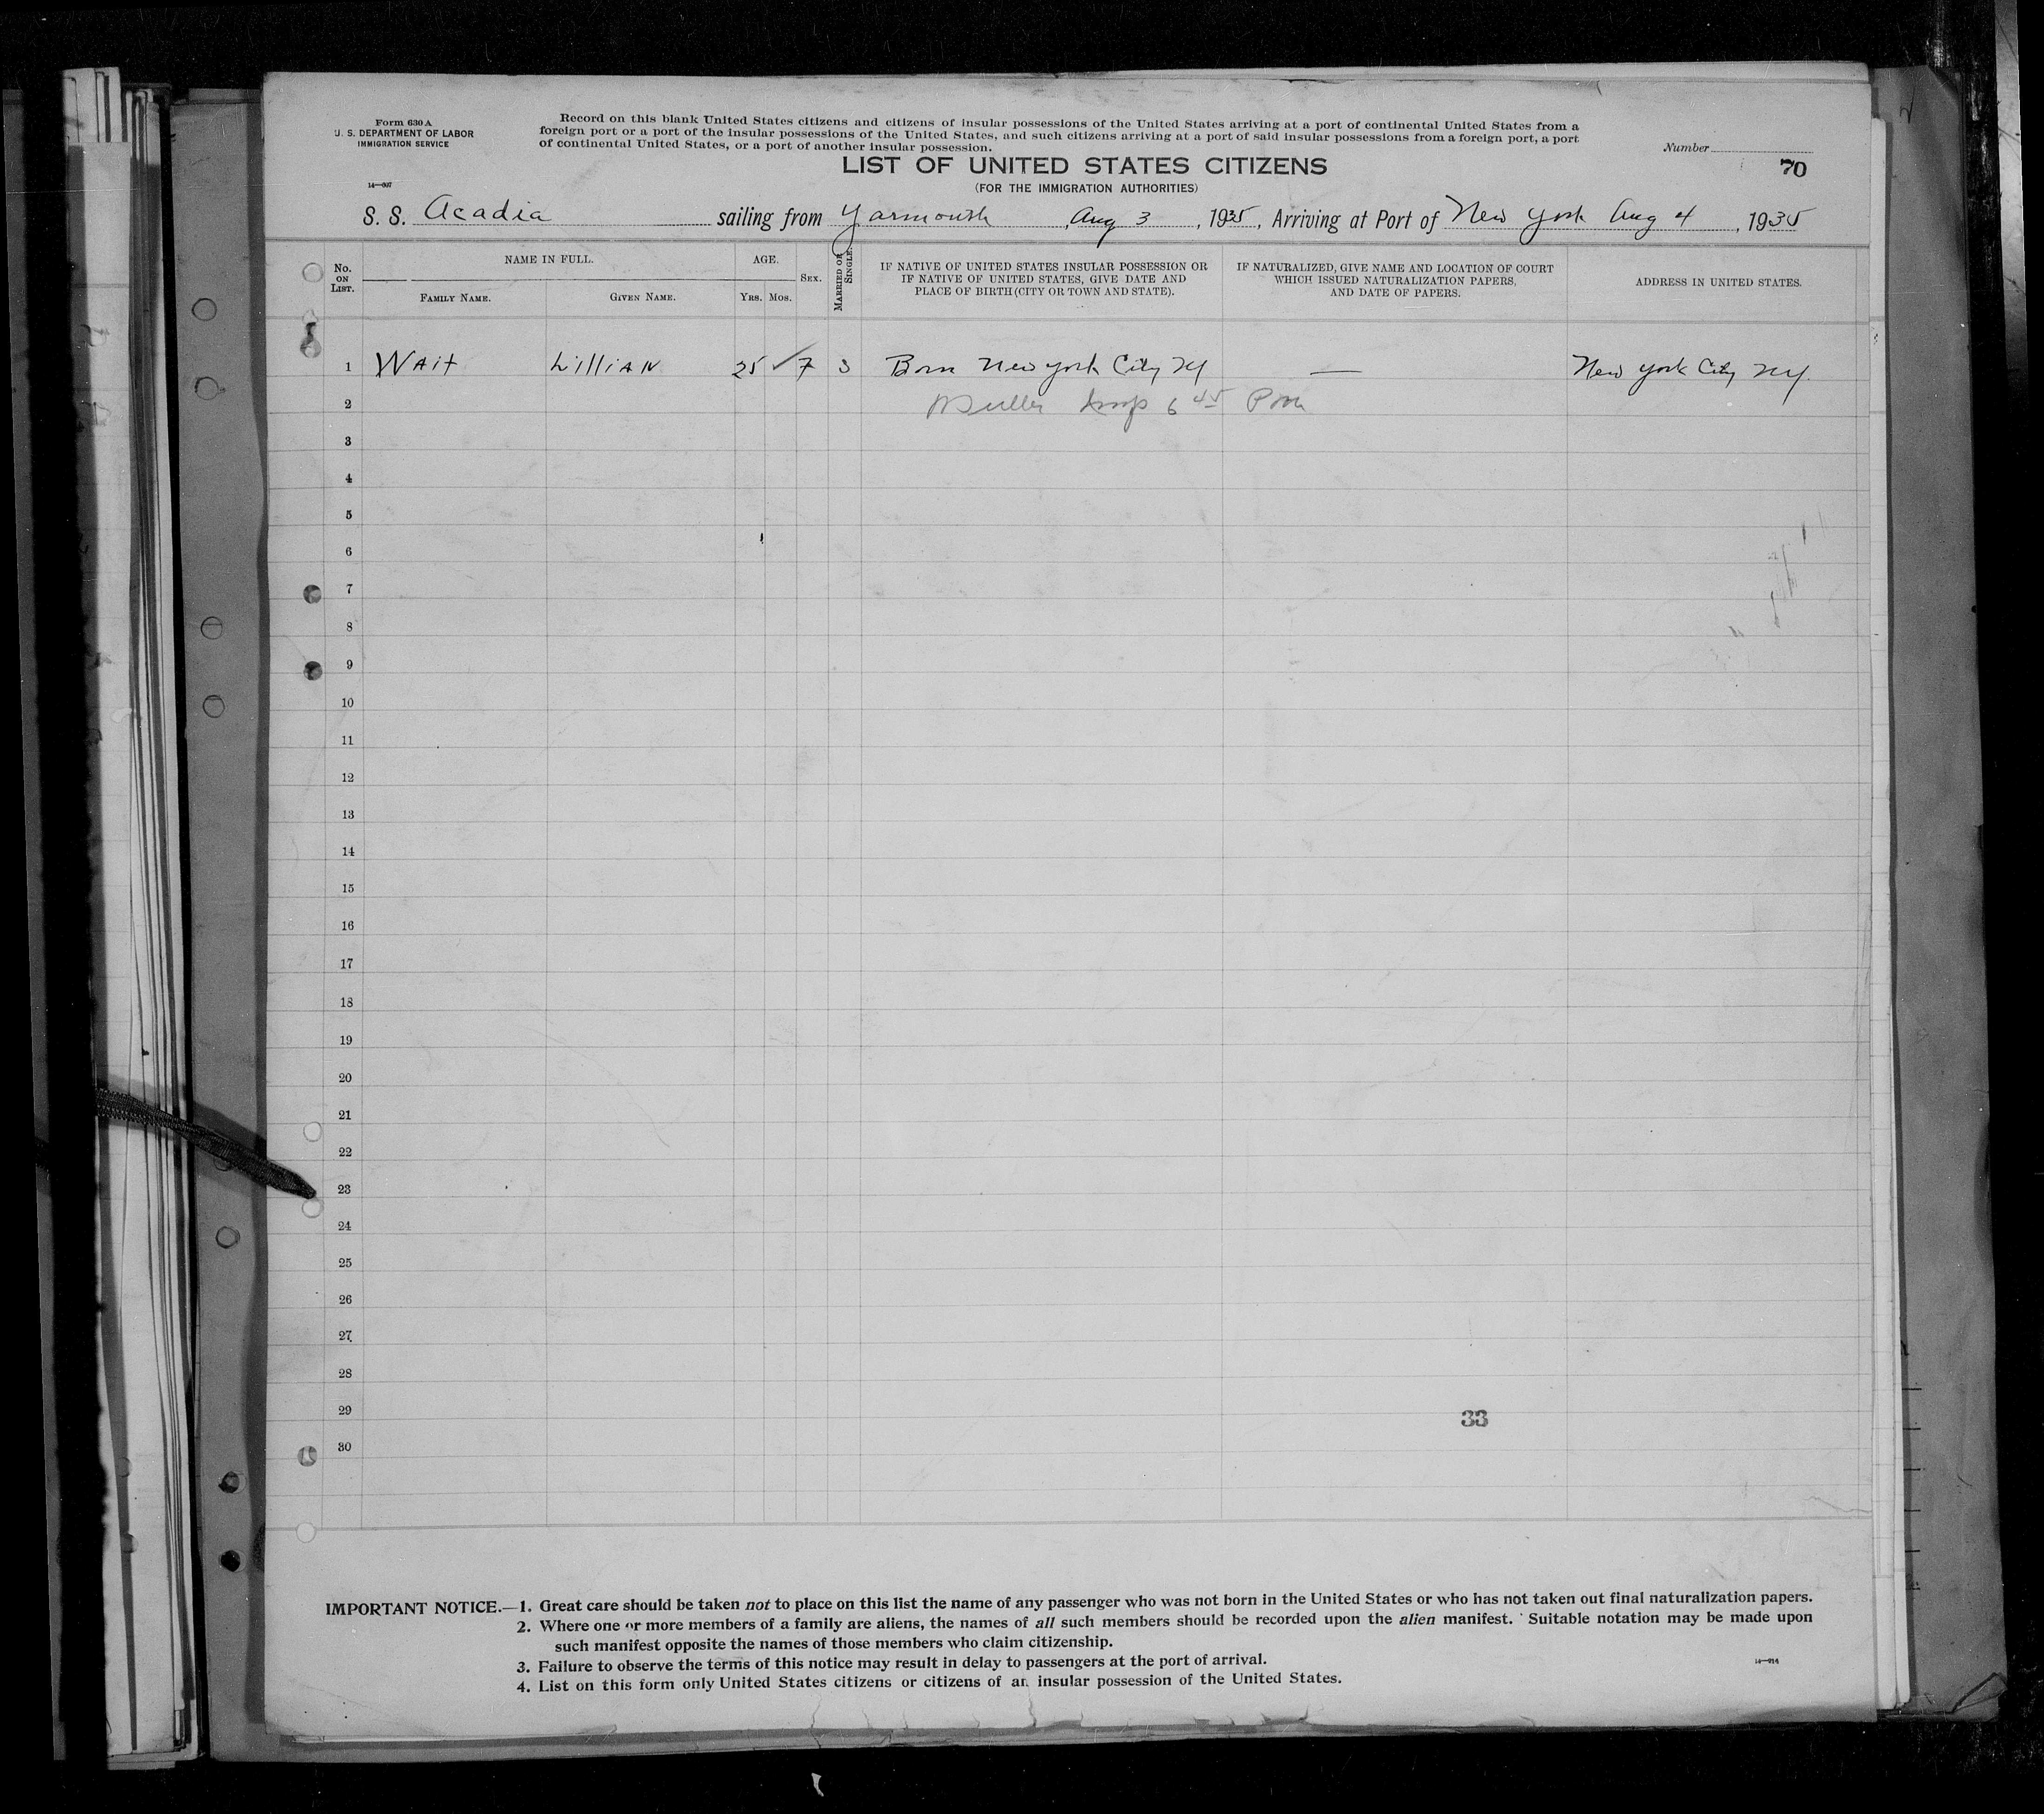 Form 630 A
U. S. DEPARTMENT OF LABOR
IMMIGRATION SERVICE
14—607
Record on this blank United States citizens and citizens of insular possessions of the United States arriving at a port of continental United States from a
foreign port or a port of the insular possessions of the United States, and such citizens arriving at a port of said insular possessions from a foreign port, a port
of continental United States, or a port of another insular possession.
Number
70
LIST OF UNITED STATES CITIZENS
(FOR THE IMMIGRATION AUTHORITIES)
S. S. Acadia sailing from Yarmouth, Aug 3, 1935, Arriving at Port of New York Aug 4, 1935
No. ON LIST.
NAME IN FULL.
FAMILY NAME.
GIVEN NAME.
AGE.
YRS. MOS.
SEX.
MARRIED OR SINGLE.
IF NATIVE OF UNITED STATES INSULAR POSSESSION OR
IF NATIVE OF UNITED STATES, GIVE DATE AND
PLACE OF BIRTH (CITY OR TOWN AND STATE).
IF NATURALIZED, GIVE NAME AND LOCATION OF COURT
WHICH ISSUED NATURALIZATION PAPERS,
AND DATE OF PAPERS.
ADDRESS IN UNITED STATES.
1 Wait Lillian 25 ✓ F S Born New York City NY — New York City NY.
2 Insp 6 45 Pm
3
4
5
6
7
8
9
10
11
12
13
14
15
16
17
18
19
20
21
22
23
24
25
26
27
28
29
33
30
IMPORTANT NOTICE.—1. Great care should be taken not to place on this list the name of any passenger who was not born in the United States or who has not taken out final naturalization papers.
2. Where one or more members of a family are aliens, the names of all such members should be recorded upon the alien manifest. Suitable notation may be made upon
such manifest opposite the names of those members who claim citizenship.
3. Failure to observe the terms of this notice may result in delay to passengers at the port of arrival.
14—914
4. List on this form only United States citizens or citizens of an insular possession of the United States.